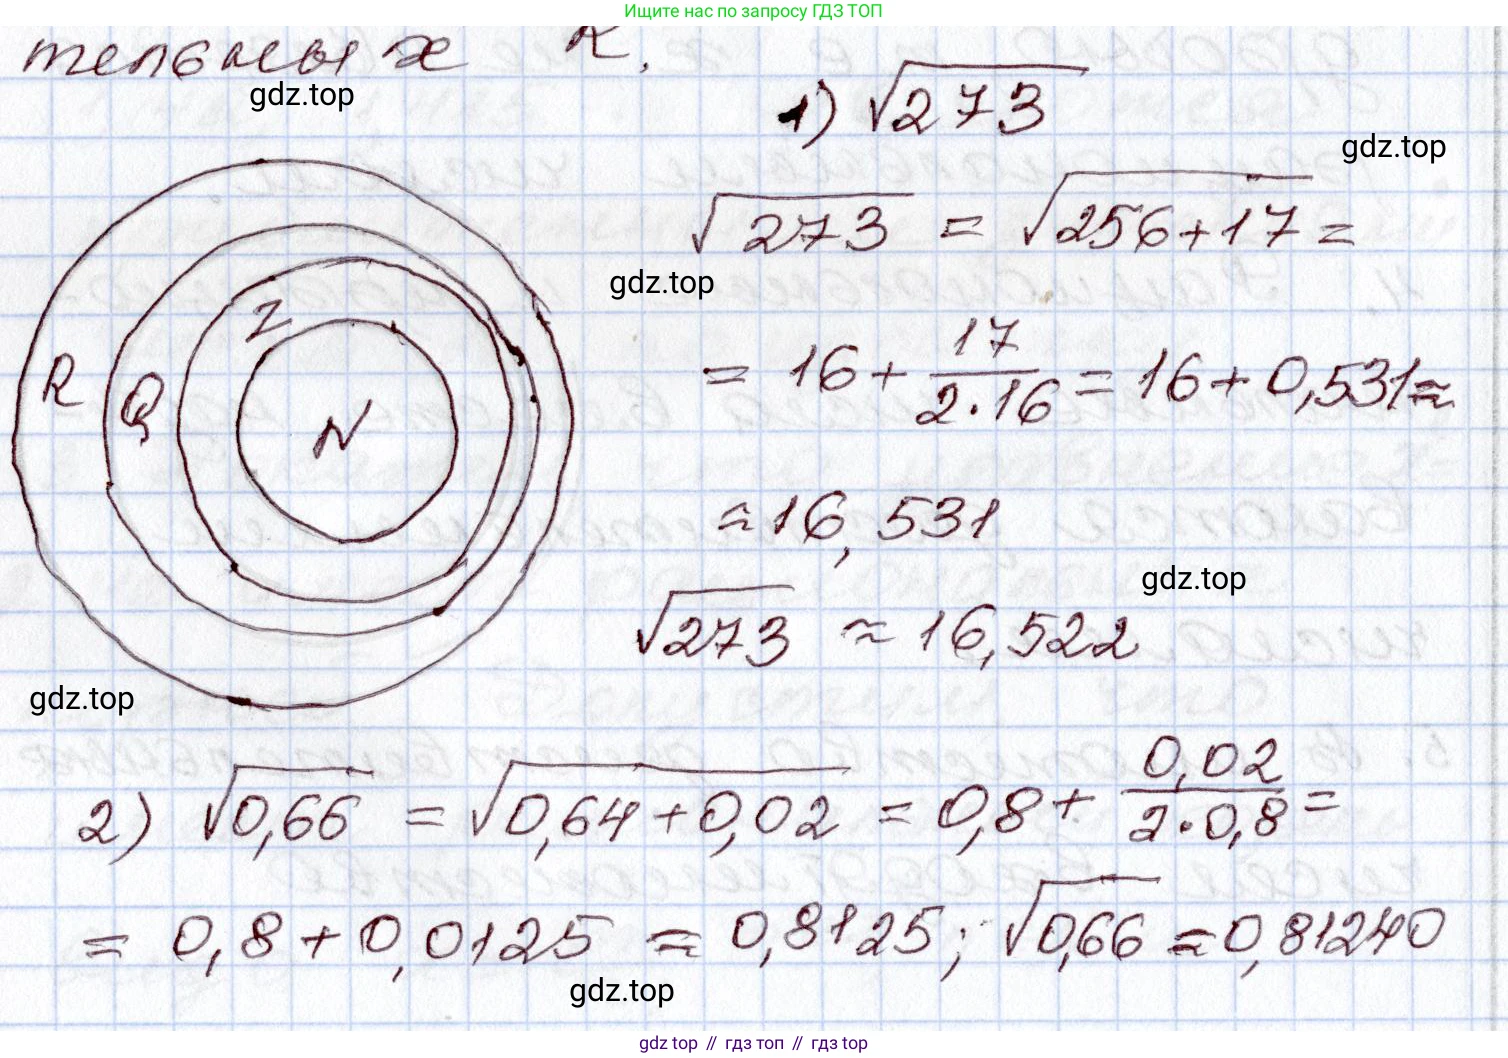 Ищите нас по запросу ГДЗ ТОП
тельных R.
gdz.top
1) √273
gdz.top
√273 = √256+17 =
gdz.top
Z
R Q N
= 16 + 17/2·16 = 16 + 0,531 ≈
≈ 16,531
gdz.top
√273 ≈ 16,522
gdz.top
2) √0,66 = √0,64+0,02 = 0,8 + 0,02/2·0,8 =
= 0,8 + 0,0125 = 0,8125; √0,66 ≈ 0,81240
gdz.top
gdz top // гдз топ // гдз top